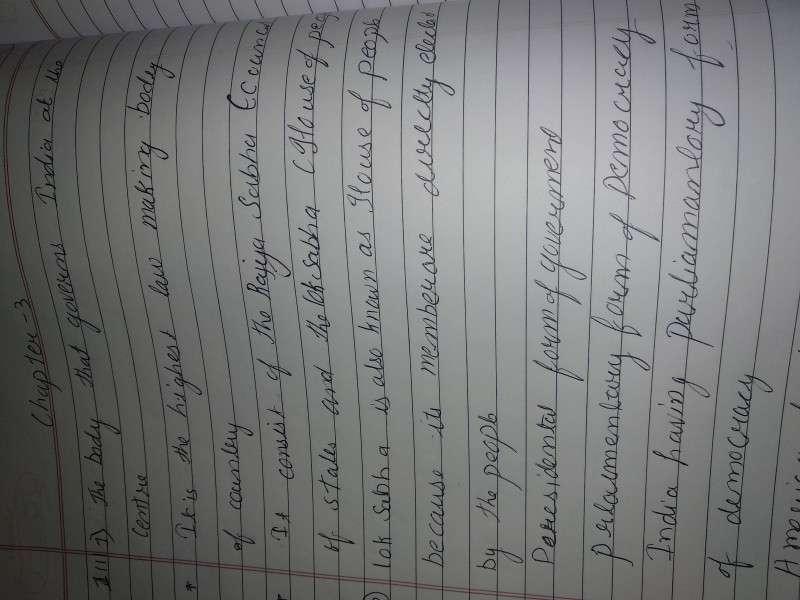 Chapter-3
1(1) The body that governs India at the
centre
* It is the highest law making body
of country
* It consist of the Rajya Sabha (Council
of states and the loksabha (House of peo
lok sabha is also known as House of people
because its member are directly elected
by the people
Peresidental form of government
Perlaimentary form of Democracy
India having parliamantary form
of democracy